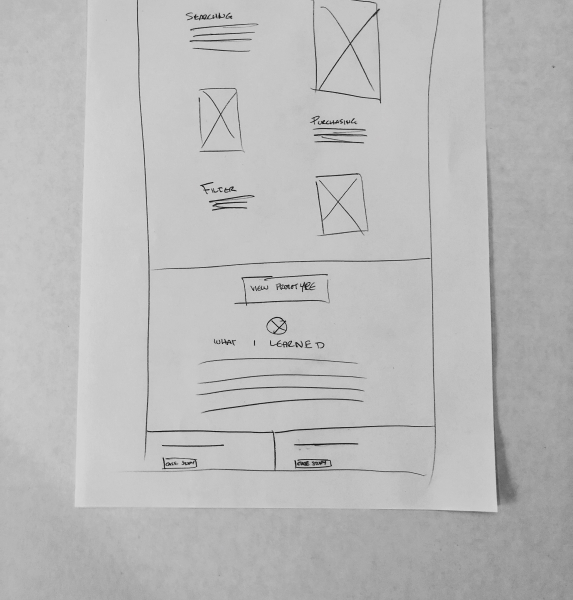 SEARCHING
PURCHASING
FILTER
VIEW PROTOTYPE
WHAT I LEARNED
CASE STUDY
CASE STUDY